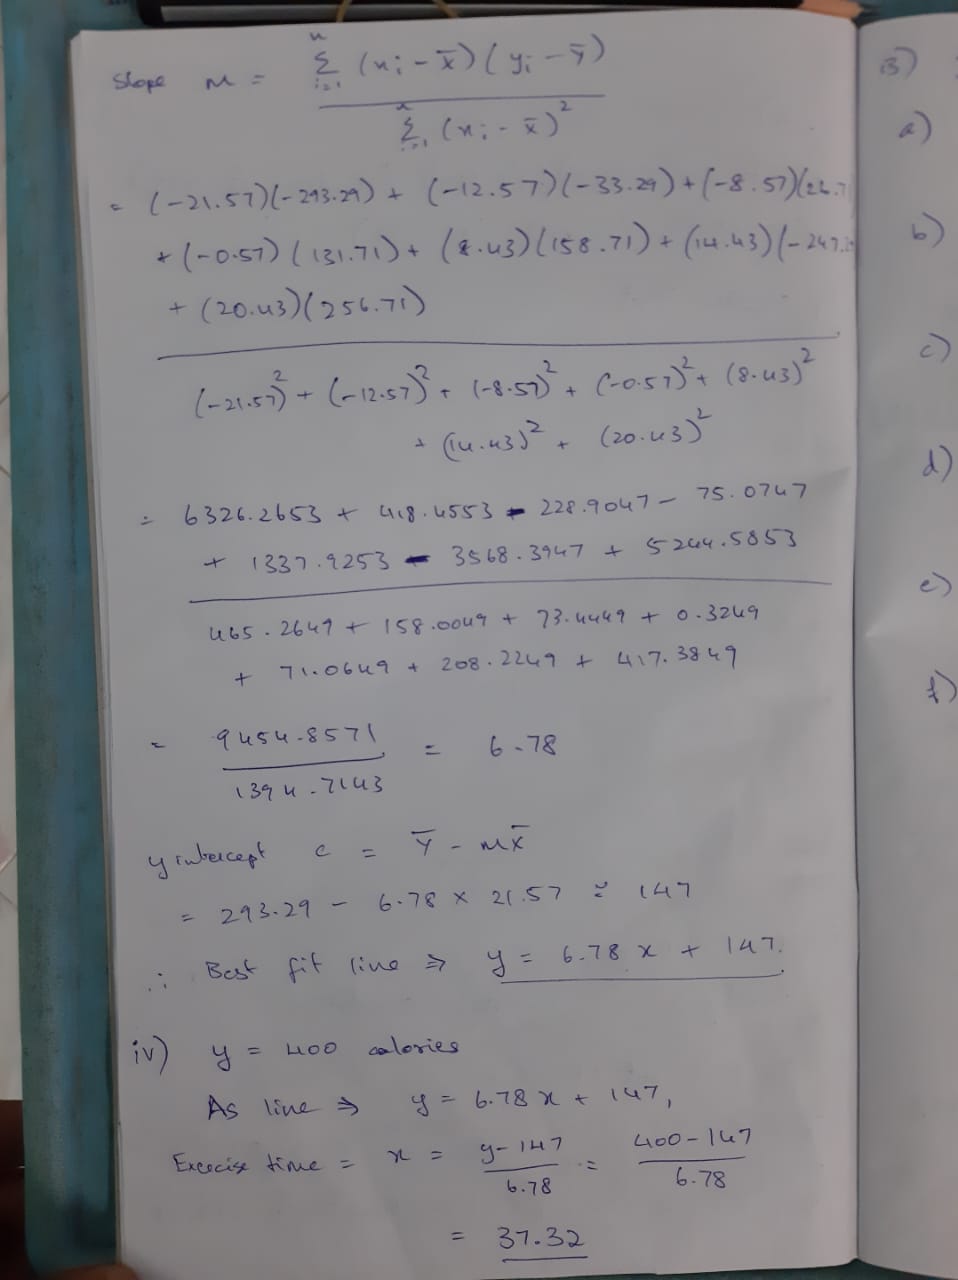 Slope M = n Σ i=1 (xi - x̄)(yi - ȳ)
n Σ i=1 (xi - x̄)²
= (-21.57)(-293.29) + (-12.57)(-33.29) + (-8.57)(26.71
+ (-0.57)(131.71) + (8.43)(158.71) + (14.43)(-247.29
+ (20.43)(256.71)
(-21.57)² + (-12.57)² + (-8.57)² + (-0.57)² + (8.43)²
+ (14.43)² + (20.43)²
= 6326.2653 + 418.4553 - 228.9047 - 75.0747
+ 1337.9253 - 3568.3947 + 5244.5853
465.2649 + 158.0049 + 73.4449 + 0.3249
+ 71.0649 + 208.2249 + 417.3849
= 9454.8571 / 1394.7143 = 6.78
y intercept c = ȳ - mx̄
= 293.29 - 6.78 × 21.57 ≈ 147
∴ Best fit line ⇒ y = 6.78 x + 147.
iv) y = 400 calories
As line ⇒ y = 6.78 x + 147,
Excecise time = x = y-147 / 6.78 = 400-147 / 6.78
= 37.32
3)
a)
b)
c)
d)
e)
f)